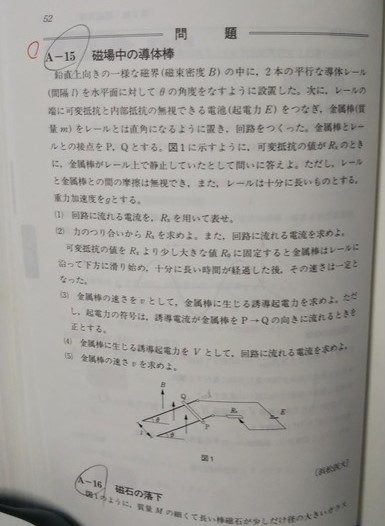 52
問 題
A-15 磁場中の導体棒
鉛直上向きの一様な磁界(磁束密度B)の中に，2本の平行な導体レール
(間隔l)を水平面に対してθの角度をなすように設置した。次に，レールの
端に可変抵抗と内部抵抗の無視できる電池(起電力E)をつなぎ，金属棒(質
量m)をレールとは直角になるように置き，回路をつくった。金属棒とレー
ルとの接点をP，Qとする。図1に示すように，可変抵抗の値がR₀のとき
に，金属棒がレール上で静止していたとして問いに答えよ。ただし，レール
と金属棒との間の摩擦は無視でき，また，レールは十分に長いものとする。
重力加速度をgとする。
(1) 回路に流れる電流を，R₀を用いて表せ。
(2) 力のつり合いからR₀を求めよ。また，回路に流れる電流を求めよ。
可変抵抗の値をR₀より少し大きな値 に固定すると金属棒はレールに
沿って下方に滑り始め，十分に長い時間が経過した後，その速さは一定と
なった。
(3) 金属棒の速さをvとして，金属棒に生じる誘導起電力を求めよ。ただ
し，起電力の符号は，誘導電流が金属棒をP→Qの向きに流れるときを
正とする。
(4) 金属棒に生じる誘導起電力をVとして，回路に流れる電流を求めよ。
(5) 金属棒の速さvを求めよ。
B
Q
θ
l
θ
P
R₀
E
図1
〔浜松医大〕
A-16 磁石の落下
図1のように，質量Mの細くて長い棒磁石が少しだけ径の大きいガラス